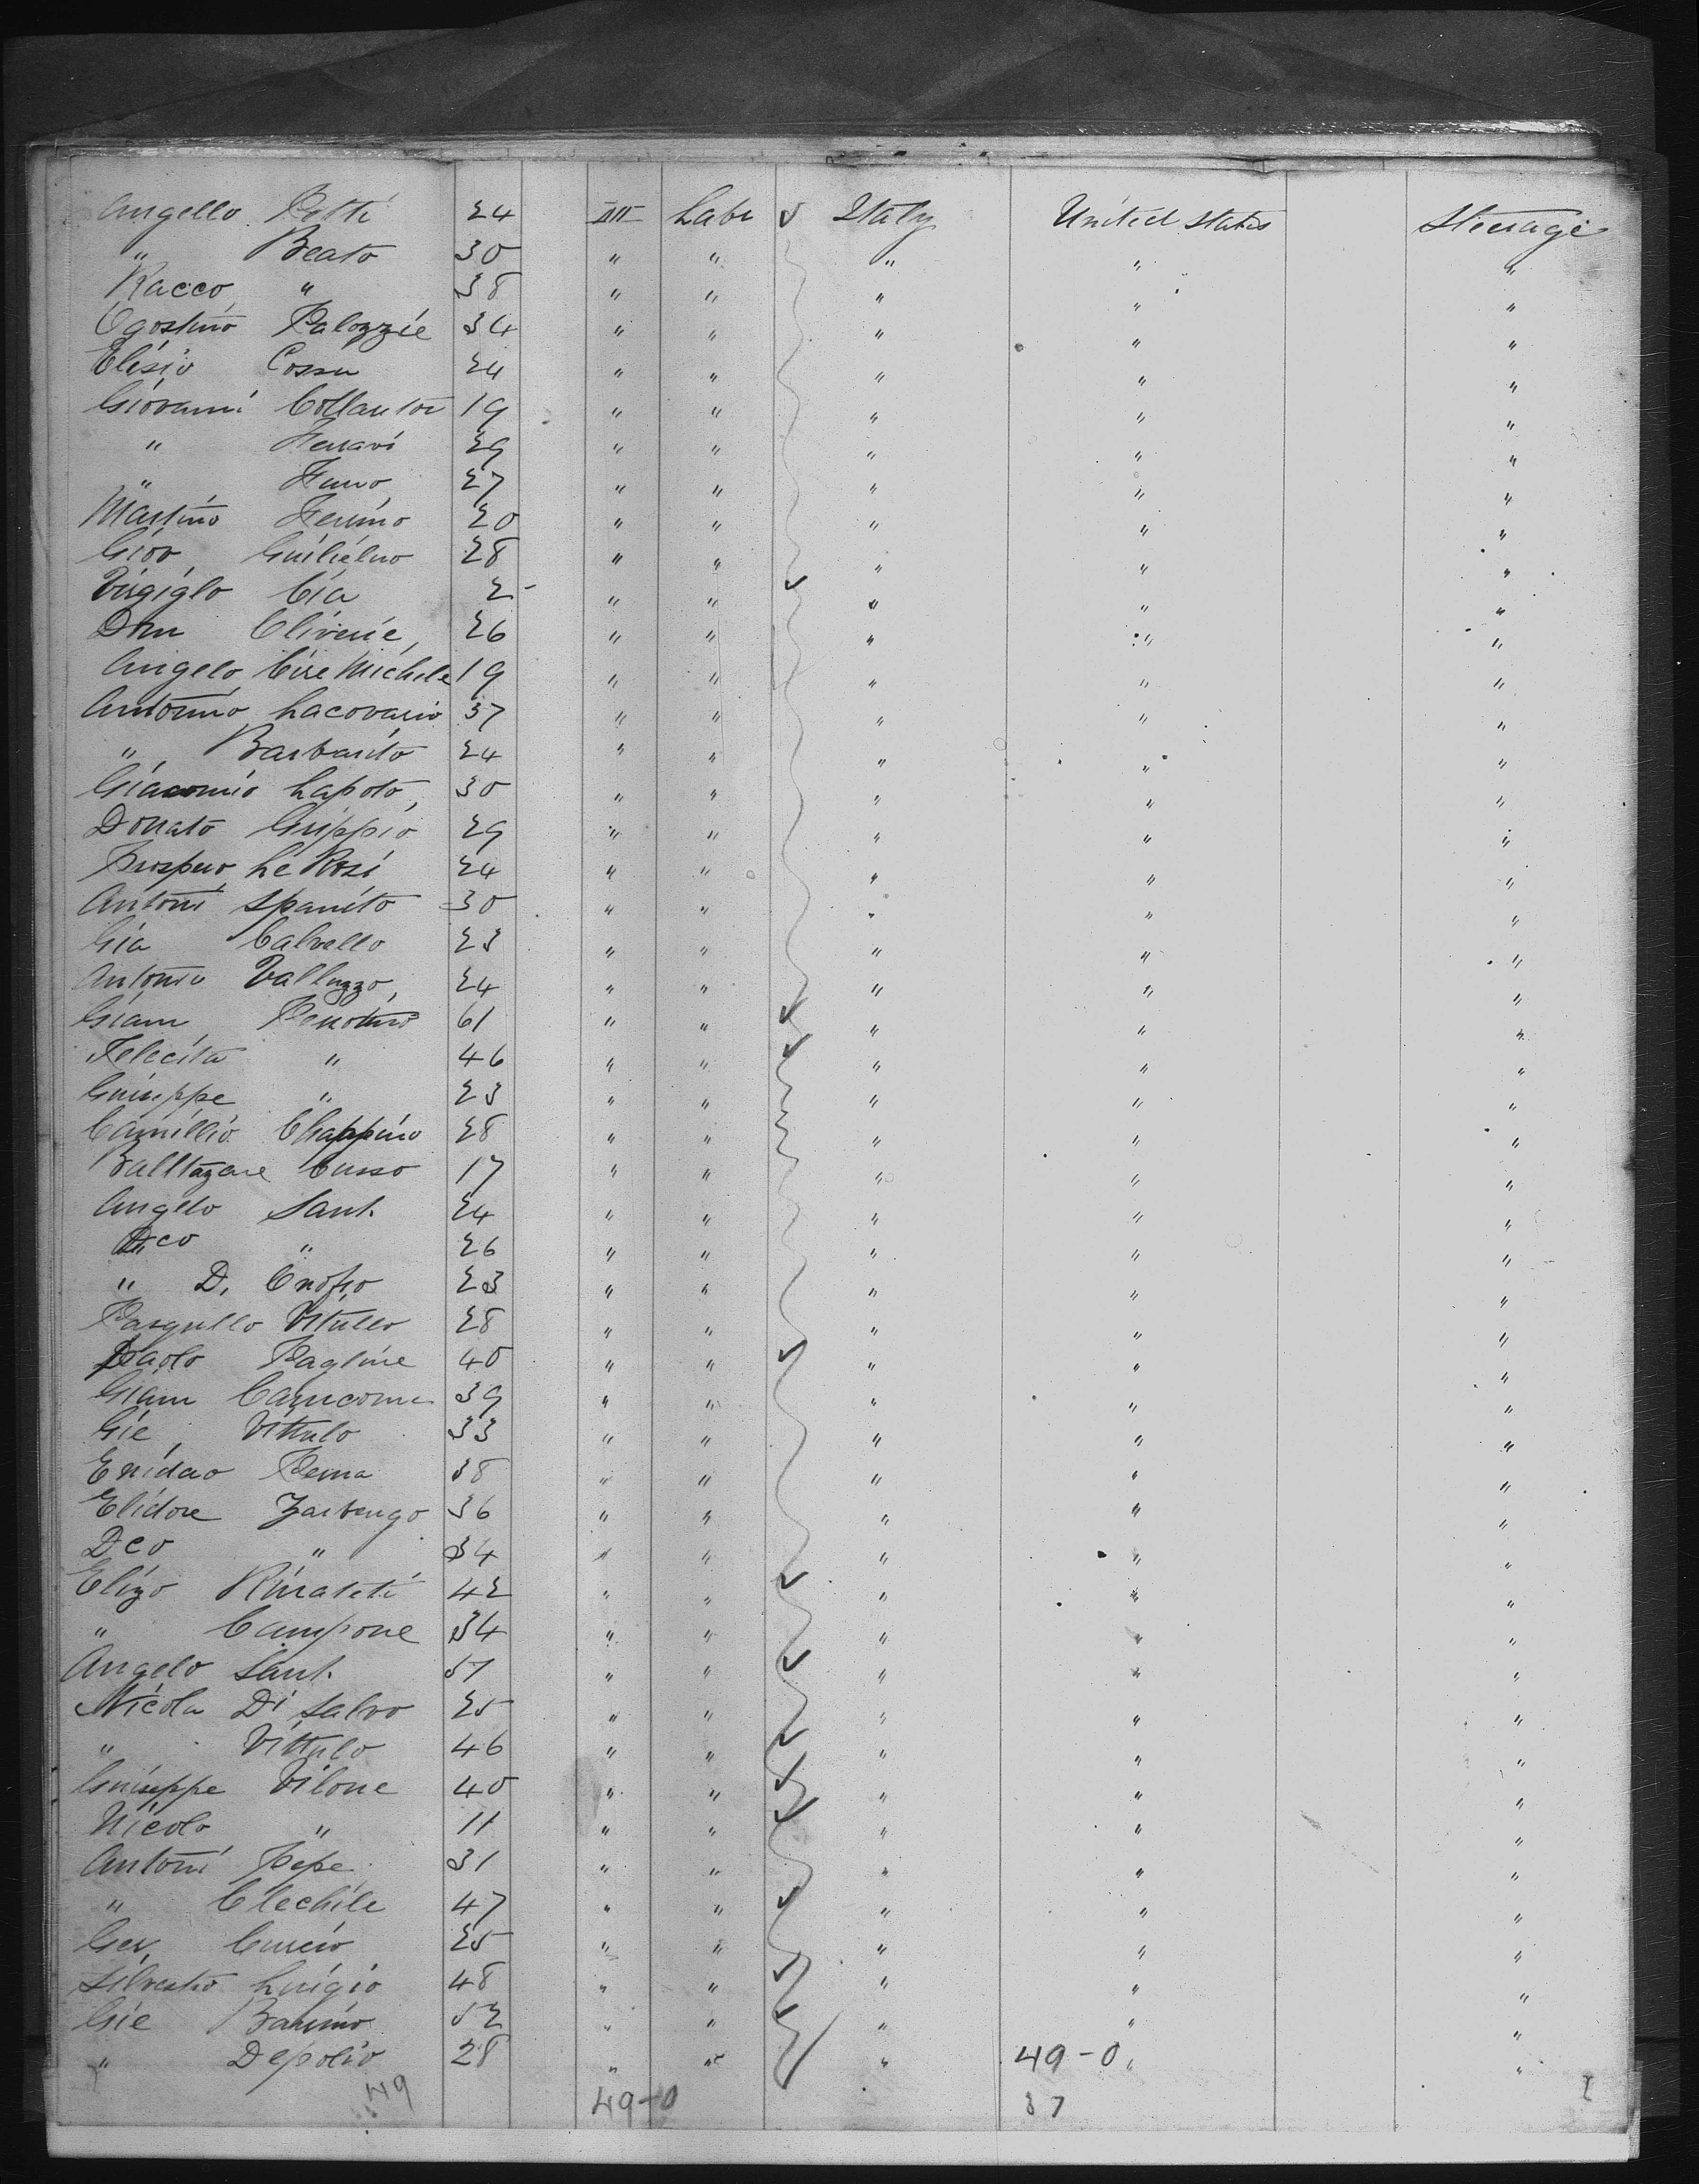 Angello Potti 24 III Labr ✓ Italy United States Steerage
" Beato 30 " " " " "
Racco " 38 " " " " "
Ogostino Palozzie 34 " " " " "
Elisio Cossu 24 " " " " "
Giovanni Collanton 19 " " " " "
" Ferravi 29 " " " " "
" Furro 27 " " " " "
Martino Fermino 20 " " " " "
Giov Guilielmo 28 " " " " "
Virgiglo Cia 2- " " ✓ " " "
Dom Oliverie 26 " " " " "
Angelo Cire Michele 19 " " " " "
Antonino Lacovario 37 " " " " "
" Barbarito 24 " " " " "
Giacomio Lapoto 30 " " " " "
Donato Grippio 29 " " " " "
Prospero Le Rosi 24 " " " " "
Antoni Spanito 30 " " " " "
Gia Calvello 23 " " " " "
Antonio Valluzzo 24 " " " " "
Giam Penotino 61 " " ✓ " " "
Felecita " 46 " " ✓ " " "
Guiseppe " 23 " " " " "
Camillio Chappino 28 " " " " "
Balltazare Cusso 17 " " " " "
Angelo Sant. 24 " " " " "
Dco " 26 " " " " "
" D. Onofro 23 " " " " "
Pasqullo Vitullo 28 " " " " "
Paolo Pagline 40 " " ✓ " " "
Giam 39 " " " " "
Gie Vittulo 33 " " " " "
Enidao Perna 38 " " " " "
Elidore Zarbengo 36 " " " " "
Dco " 34 " " " " "
Elizo Rirateti 42 " " ✓ " " "
" Campone 34 " " " " "
Angelo Sant. 51 " " ✓ " " "
Nicola Di Salvo 25 " " " " "
" Vittulo 46 " " ✓ " " "
Guiseppe Vilone 40 " " ✓ " " "
Nicolo " 11 " " ✓ " " "
Antoni Pepe 31 " " " " "
" Clechile 47 " " ✓ " " "
Ger. Curcio 25 " " " " "
Silvestro Luigio 48 " " ✓ " " "
Gie Barimo 52 " " ✓ " " "
" Depolio 28 " " " 49-0 " "
49 49-0 37